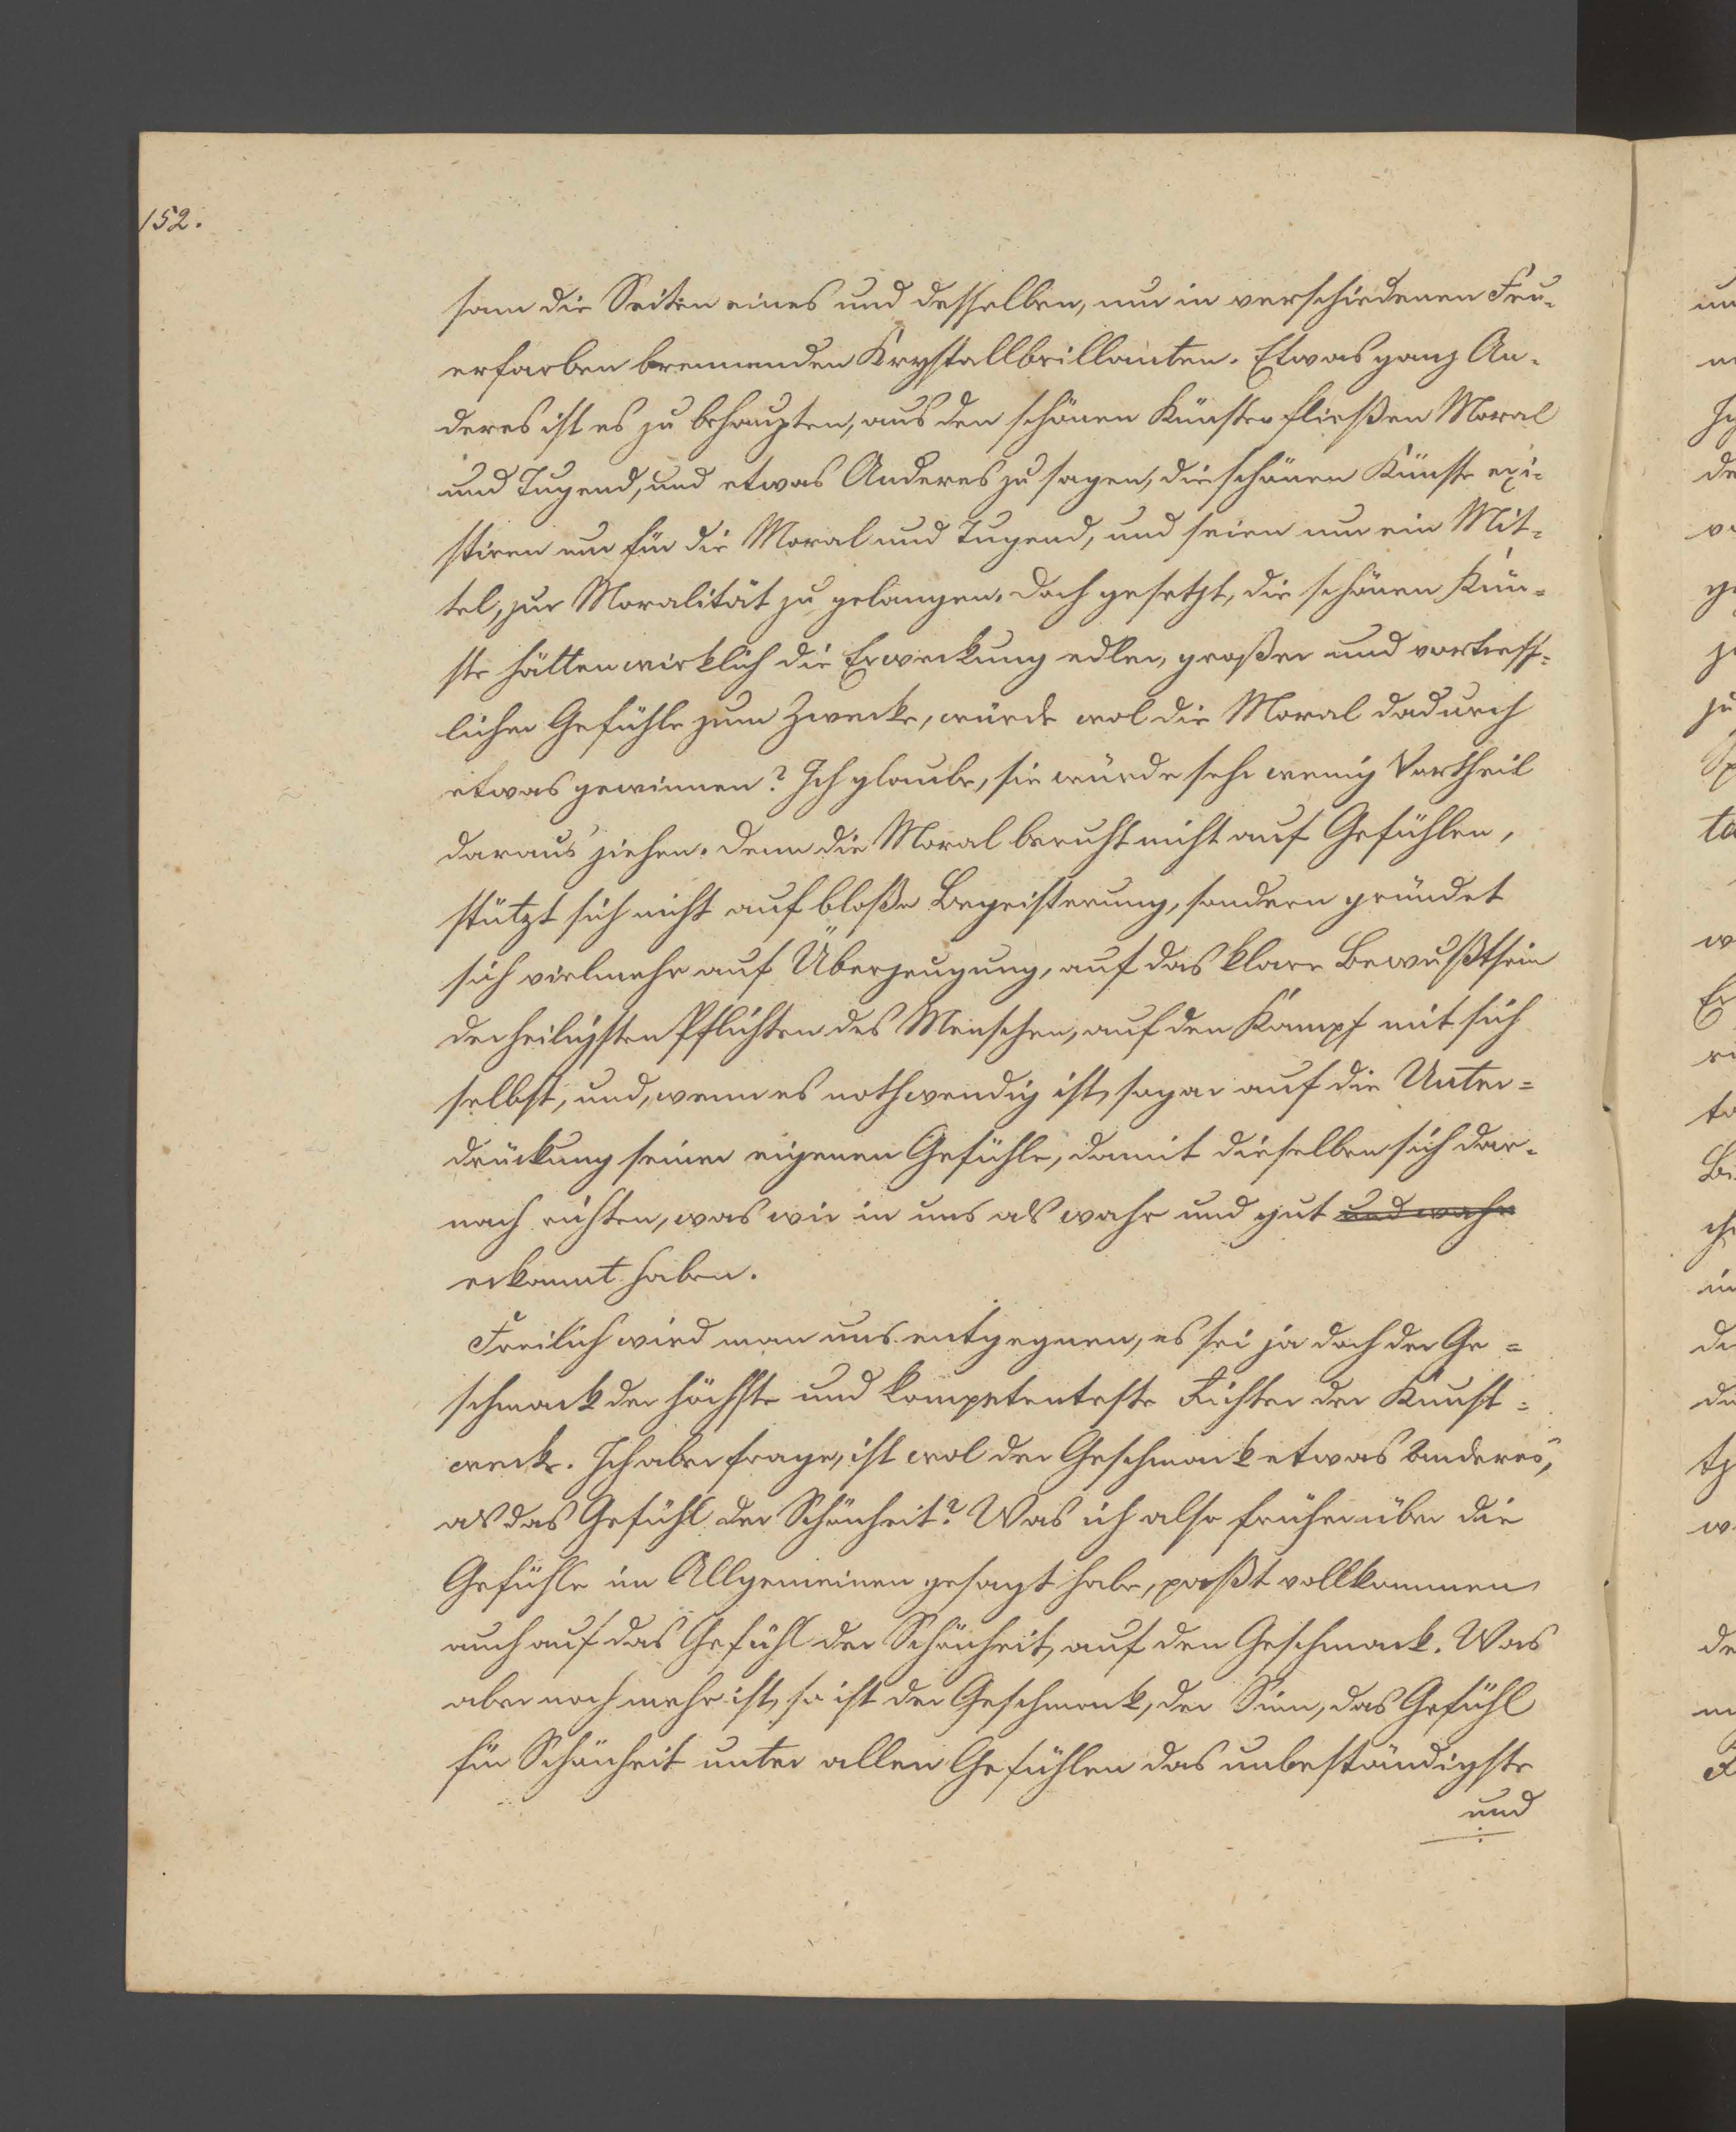 152.
sam die Seiten eines und desselben, nur in verschiedenen Feu-
erfarben brennenden Krystallbrillanten. Etwas ganz An-
deres ist es zu behaupten, aus den schönen Künsten fließen Moral
und Tugend, und etwas Anderes zu sagen, die schönen Künste exi-
stiren nur für die Moral und Tugend, und seien nur ein Mit-
tel, zur Moralität zu gelangen. Doch gesetzt, die schönen Kün-
ste hätten wirklich die Erweckung edler, großer und vortreff-
licher Gefühle zum Zwecke, würde wol die Moral dadurch
etwas gewinnen? Ich glaube, sie würde sehr wenig Vortheil
daraus ziehen. Denn die Moral beruht nicht auf Gefühlen,
stützt sich nicht auf bloße Begeisterung, sondern gründet
sich vielmehr auf Überzeugung, auf das klare Bewußtsein
der heiligsten Pflichten des Menschen, auf den Kampf mit sich
selbst, und, wenn es nothwendig ist, sogar auf die Unter-
drückung seiner eigenen Gefühle, damit dieselben sich dar-
nach richten, was wir in uns als wahr und gut und wahr
erkannt haben.
Freilich wird man uns entgegnen, es sei ja doch der Ge-
schmack der höchste und kompetenteste Richter der Kunst-
werke. Ich aber frage, ist wol der Geschmack etwas Anderes,
als das Gefühl der Schönheit? Was ich also früher über die
Gefühle im Allgemeinen gesagt habe, paßt vollkommen
auch auf das Gefühl der Schönheit, auf den Geschmack. Was
aber noch mehr ist, so ist der Geschmack, der Sinn, das Gefühl
für Schönheit unter allen Gefühlen das unbeständigste
und